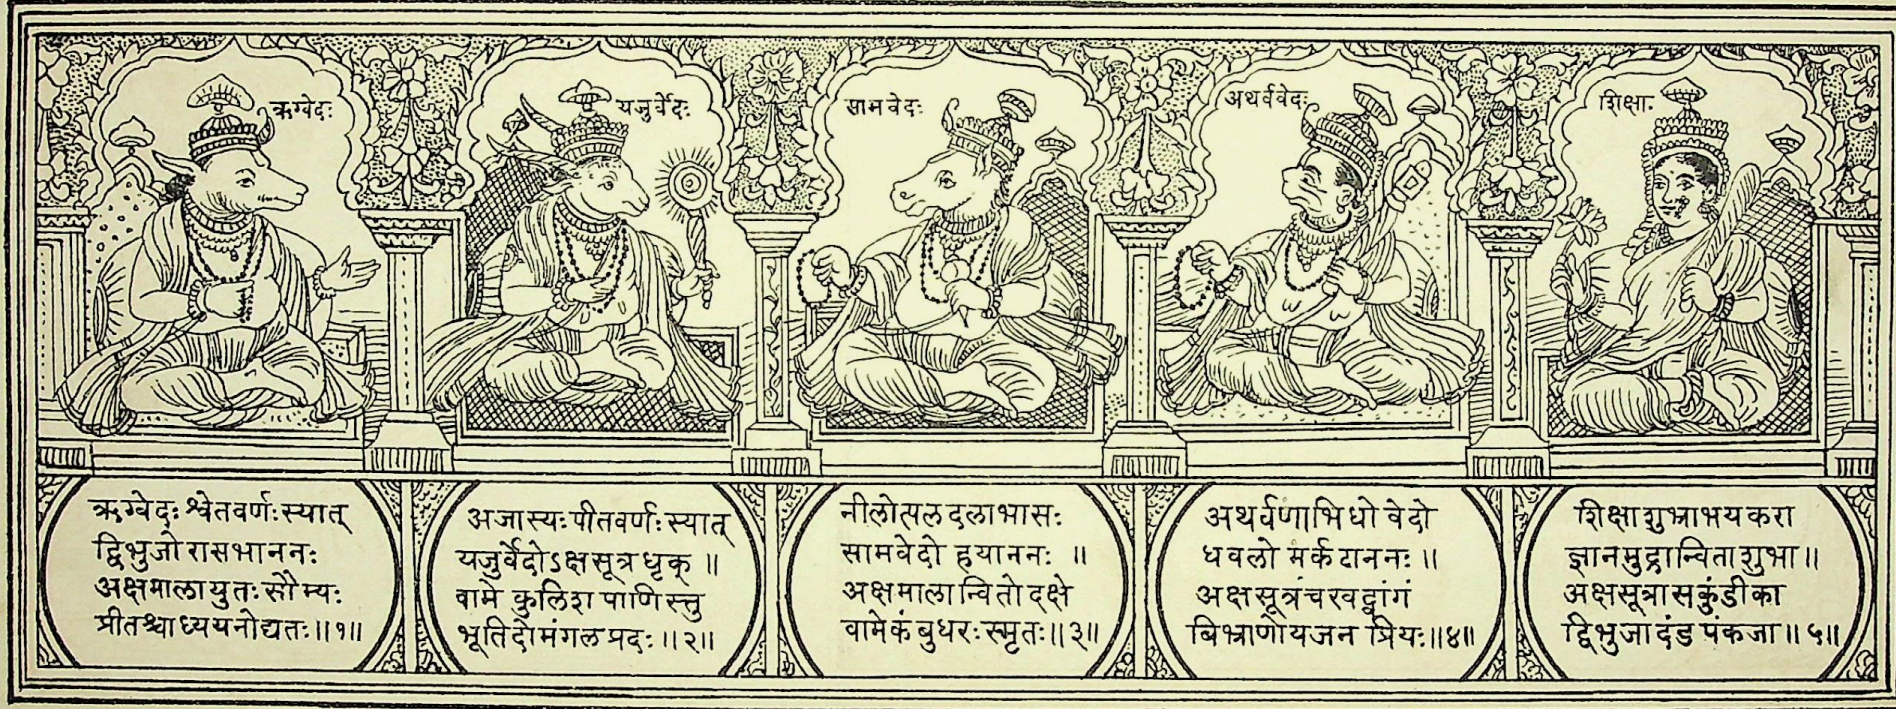 ऋग्वेदः
यजुर्वेदः
सामवेदः
अथर्ववेदः
शिक्षा-
ऋग्वेदः श्वेतवर्णः स्यात्
द्विभुजो रासभाननः
अक्षमालायुतः सौम्यः
प्रीतश्चाध्ययनोद्यतः ॥१॥
अजास्यः पीतवर्णः स्यात्
यजुर्वेदोऽक्षसूत्रधृक् ॥
वामे कुलिशपाणिस्तु
भूतिदो मंगलप्रदः ॥२॥
नीलोत्पलदलाभासः
सामवेदो हयाननः ॥
अक्षमालान्वितो दक्षे
वामे कंबुधरः स्मृतः ॥३॥
अथर्वणाभिधो वेदो
धवलो मर्कटाननः ॥
अक्षसूत्रंच खट्वांगं
बिभ्राणोयजन प्रियः ॥४॥
शिक्षा शुभ्राभयकरा
ज्ञानमुद्रान्विता शुभा ॥
अक्षसूत्रा सकुंडीका
द्विभुजा दंड पंकजा ॥५॥